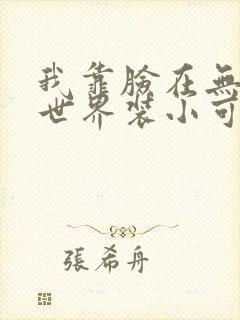 我靠臉在無
世界裝小可
張希舟